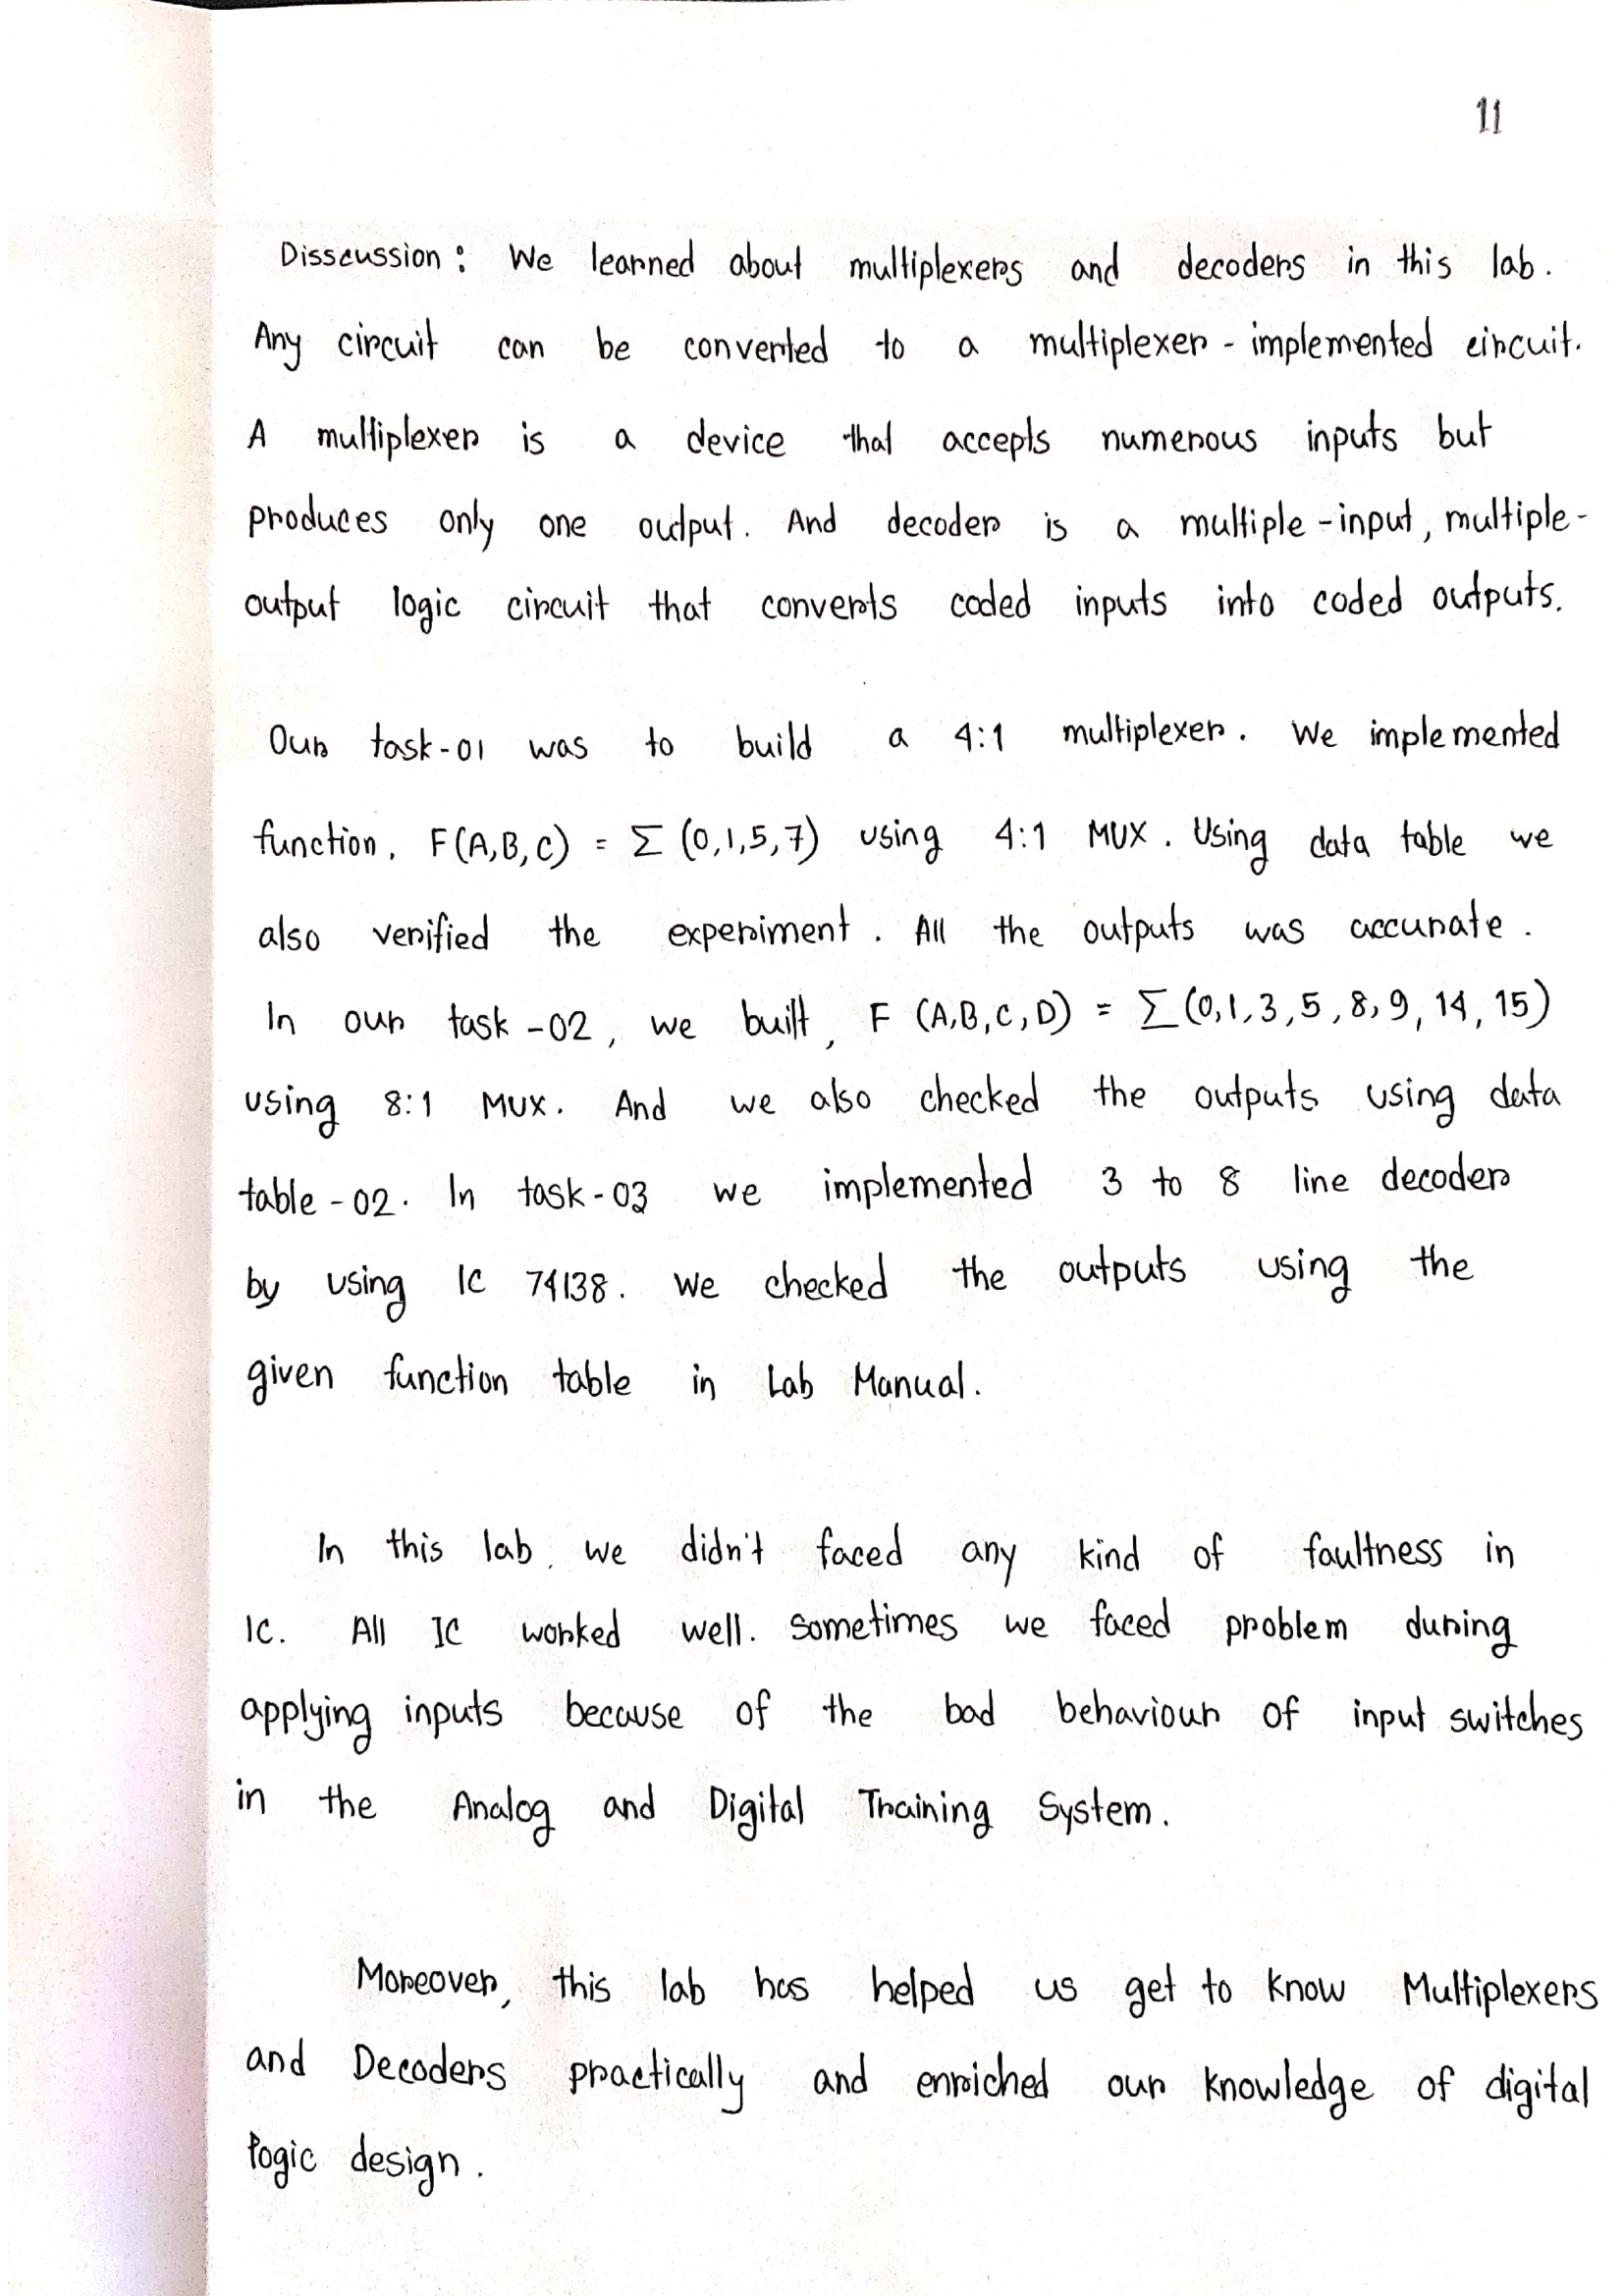 11
Disscussion: We learned about multiplexers and decoders in this lab.
Any circuit can be converted to a multiplexer - implemented circuit.
A multiplexer is a device that accepts numerous inputs but
produces only one output. And decoder is a multiple-input, multiple-
output logic circuit that converts coded inputs into coded outputs.
Our task-01 was to build a 4:1 multiplexer. We implemented
function, F(A,B,C) = Σ (0,1,5,7) using 4:1 MUX. Using data table we
also verified the experiment. All the outputs was accurate.
In our task-02, we built, F (A,B,C,D) = Σ(0,1,3,5,8,9,14,15)
using 8:1 MUX. And we also checked the outputs using data
table-02. In task-03 we implemented 3 to 8 line decoder
by using IC 74138. We checked the outputs using the
given function table in Lab Manual.
In this lab, we didn't faced any kind of faultness in
IC. All IC worked well. Sometimes we faced problem during
applying inputs because of the bad behaviour of input switches
in the Analog and Digital Training System.
Moreover, this lab has helped us get to know Multiplexers
and Decoders practically and enriched our knowledge of digital
logic design.